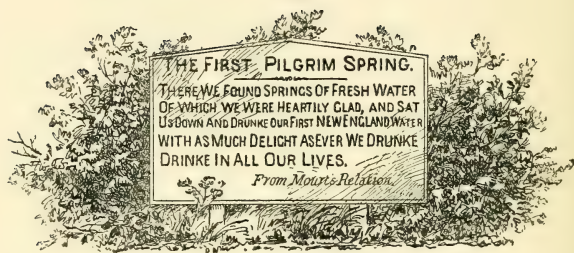 THE FIRST PILGRIM SPRING.
THERE WE FOUND SPRINGS OF FRESH WATER
OF WHICH WE WERE HEARTILY GLAD, AND SAT
US DOWN AND DRUNKE OUR FIRST NEW ENGLAND WATER
WITH AS MUCH DELIGHT AS EVER WE DRUNKE
DRINKE IN ALL OUR LIVES.
From Mourt's Relation.